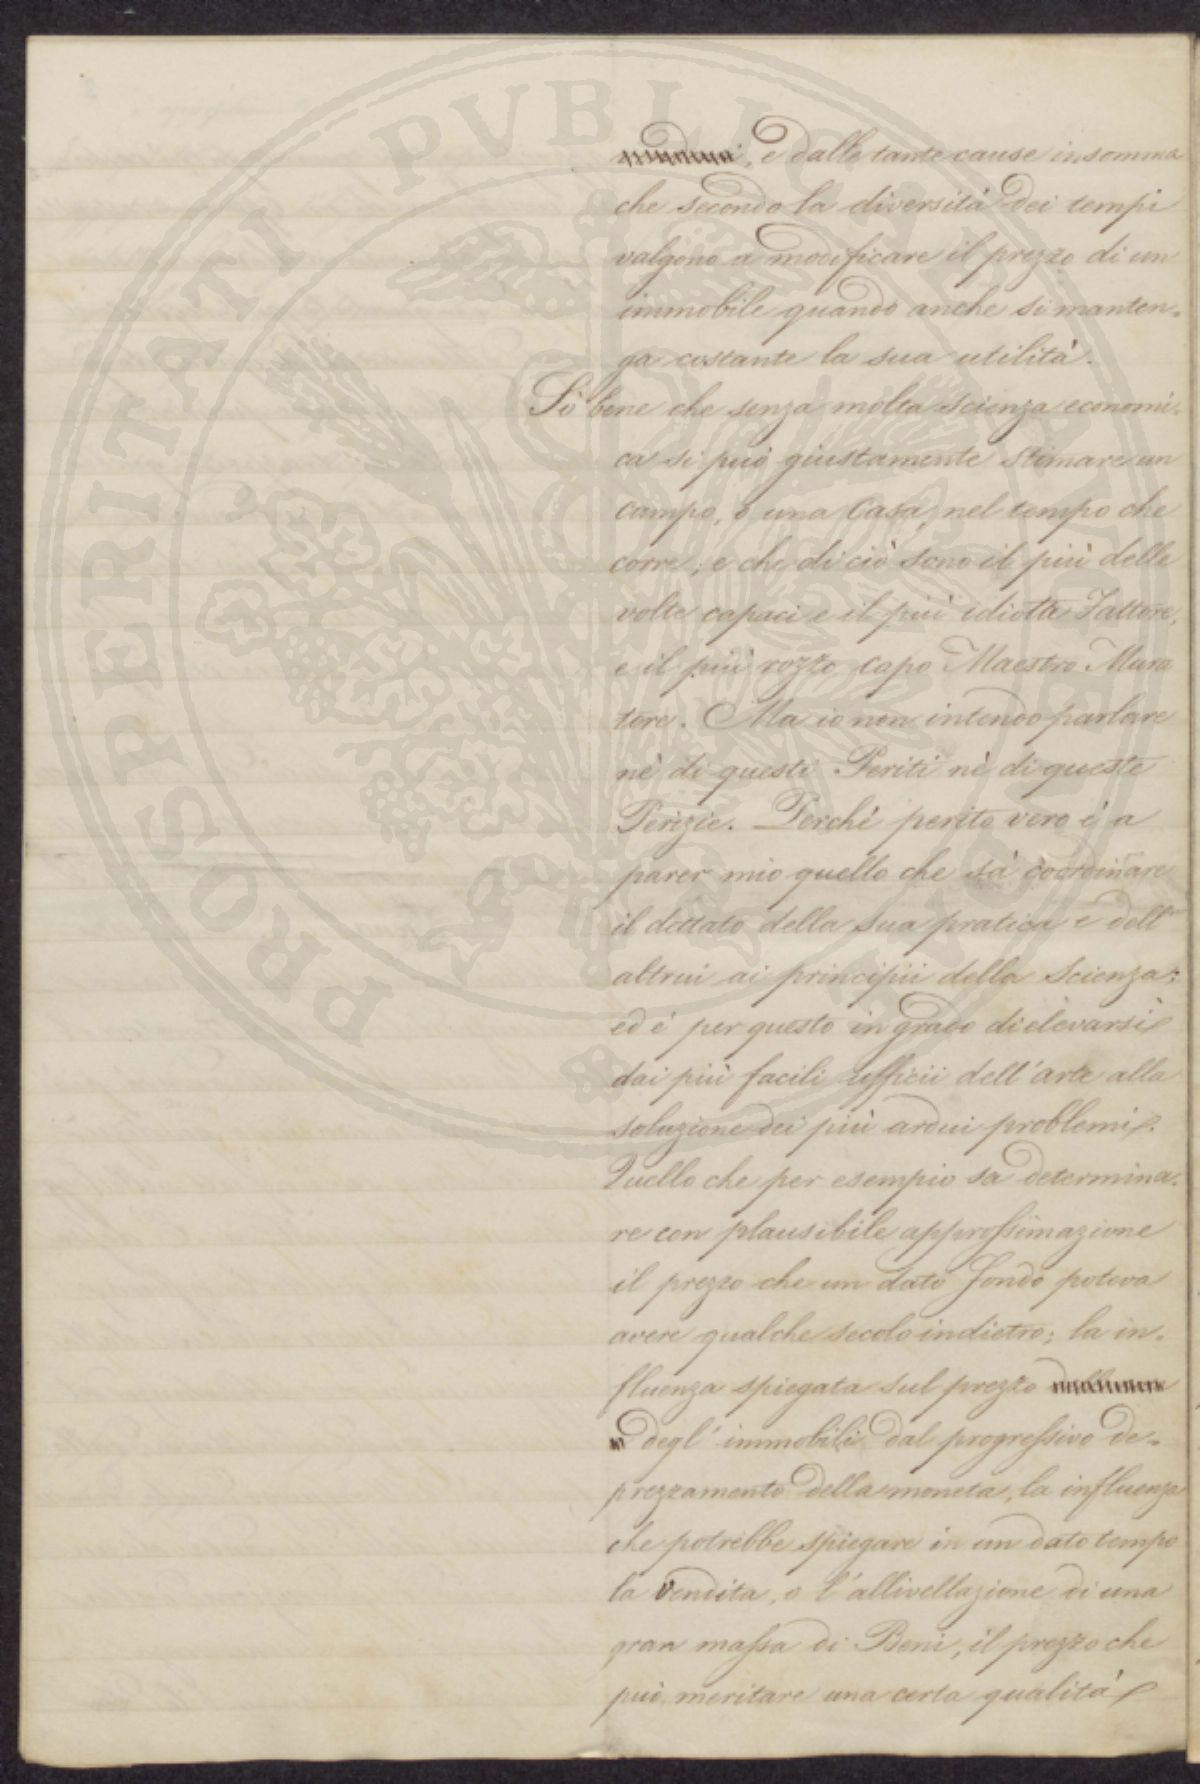 , e dalle tante cause insomma
che secondo la diversità dei tempi
valgono a modificare il prezzo di un
immobile quando anche si manten-
ga costante la sua utilità.
Sò bene che senza molta scienza economi-
ca si può giustamente stimare un
campo, o una Casa, nel tempo che
corre; e che di ciò sono il più delle
volte capaci e il più idiota Fattore,
e il più rozzo capo Maestro Mura
tore. Ma io non intendo parlare
nè di questi Periti nè di queste
Perizie. Perchè perito vero è a
parer mio quello che sà coordinare
il dettato della sua pratica e dell'
altrui ai principii della Scienza;
ed è per questo in grado di elevarsi
dai più facili ufficii dell'arte alla
soluzione dei più ardui problemi.
Quello che per esempio sa determina-
re con plausibile approssimazione
il prezzo che un dato fondo poteva
avere qualche secolo indietro; la in-
fluenza spiegata sul prezzo
degl'immobili dal progressivo de-
prezzamento della moneta, la influenza
che potrebbe spiegare in un dato tempo
la vendita, o l'allivellazione di una
gran massa di Beni, il prezzo che
può meritare una certa qualità
PROSPERITATI PVBLICAE